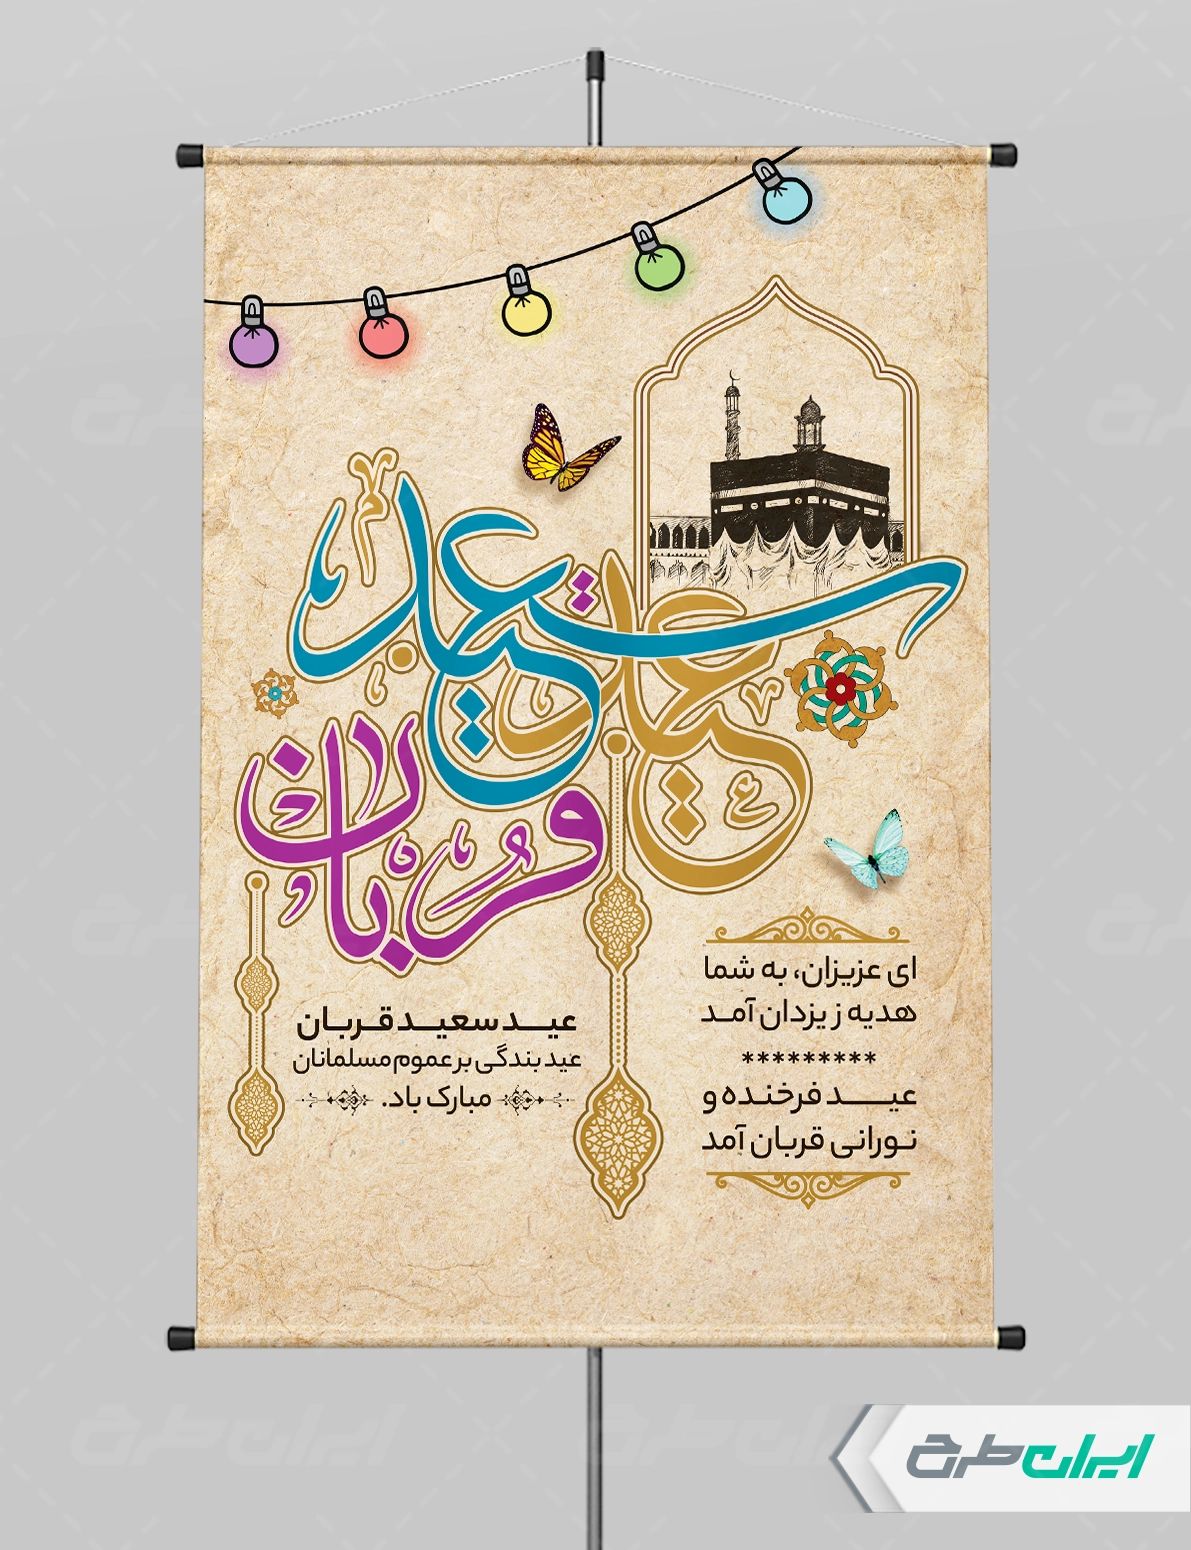 عید
سعید
قربان
ای عزیزان، به شما
هدیه ز یزدان آمد
*********
عید فرخنده و
نورانی قربان آمد
عید سعید قربان
عید بندگی بر عموم مسلمانان
مبارک باد.
ایران طرح